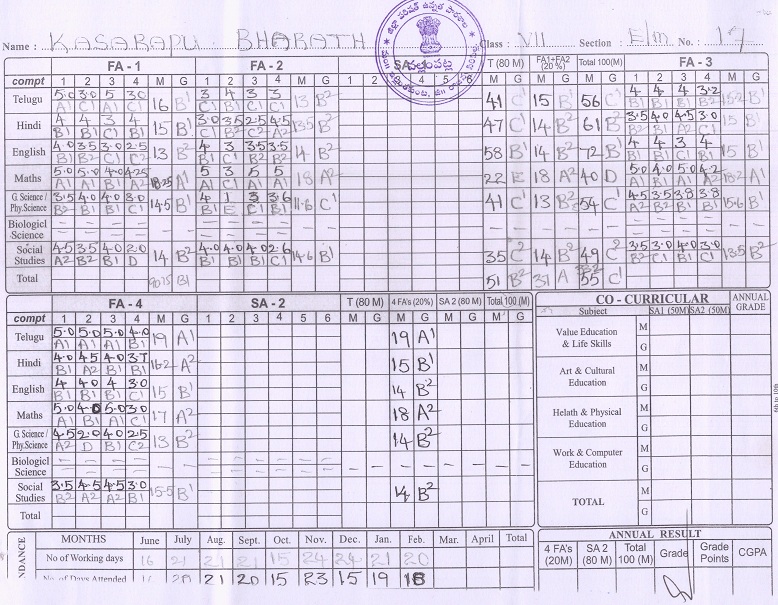 Name : KASARAPU BHARATH Class : VII Section : E/m No. : 17
FA - 1 FA - 2 SA T (80 M) FA1+FA2 (20 %) Total 100(M) FA - 3
compt 1 2 3 4 M G 1 2 3 4 M G 1 2 M G M G M G 1 2 3 4 M G
Telugu 5.0 3.0 5 3.0 16 B1 3 4 3 3 13 B2 41 C1 15 B1 56 C1 4 4 4 3.2 15.2 B1
A1 C1 A1 C1 C1 B1 C1 C1 B1 B1 B1 B2
Hindi 4 4 3 4 15 B1 3.0 3.5 2.5 4.5 13.5 B2 47 C1 14 B2 61 B2 3.5 4.0 4.5 3.0 15 B1
B1 B1 C1 B1 C1 B2 C2 A2 B2 B1 A2 C1
English 4.0 3.5 3.0 2.5 13 B2 4 3 3.5 3.5 14 B2 58 B1 14 B2 72 B1 4 4 3 4 15 B1
B1 B2 C1 C2 B1 C1 B2 B2 B1 B1 C1 B1
Maths 5.0 5.0 4.0 4.25 18.25 A1 5 3 5 5 18 A2 22 E 18 A2 40 D 5.0 4.0 5.0 4.2 18.2 A1
A1 A1 B1 A2 A1 C1 A1 A1 A1 B1 A1 A2
G. Science / Phy.Science 3.5 4.0 4.0 3.0 14.5 B1 4 1 3 3.6 11.6 C1 41 C1 13 B2 54 C1 4.5 3.5 3.8 3.8 15.6 B1
B2 B1 B1 C1 B1 E C1 B1 A2 B2 B1 B1
Biologicl Science
Social Studies 4.5 3.5 4.0 2.0 14 B2 4.0 4.0 4.0 2.6 14.6 B1 35 C2 14 B2 49 C2 3.5 3.0 4.0 3.0 13.5 B2
A2 B2 B1 D B1 B1 B1 C1 B2 C1 B1 C1
Total 90.75 B1 51 B2 55 C1
FA - 4 SA - 2 T (80 M) 4 FA's (20%) SA 2 (80 M) Total 100 (M)
compt 1 2 3 4 M G 1 2 3 4 5 6 M G M G M G M G
Telugu 5.0 5.0 5.0 4.0 19 A1 19 A1
A1 A1 A1 B1
Hindi 4.0 4.5 4.0 3.7 16.2 A2 15 B1
B1 A2 B1 B1
English 4.0 4.0 4 3.0 15 B1 14 B2
B1 B1 B1 C1
Maths 5.0 4.0 5.0 3.0 17 A2 18 A2
A1 B1 A1 C1
G. Science / Phy.Science 4.5 2.0 4.0 2.5 13 B2 14 B2
A2 D B1 C2
Biologicl Science
Social Studies 3.5 4.5 4.5 3.0 15.5 B1 14 B2
B2 A2 A2 B1
Total
CO - CURRICULAR ANNUAL GRADE
Subject SA1 (50M) SA2 (50M)
Value Education & Life Skills M G
Art & Cultural Education M G
Helath & Physical Education M G
Work & Computer Education M G
TOTAL M G
MONTHS June July Aug. Sept. Oct. Nov. Dec. Jan. Feb. Mar. April Total
No of Working days 16 21 21 21 15 24 24 21 20
No of Days Attended 16 20 21 20 15 23 15 19 18
NDANCE
ANNUAL RESULT
4 FA's (20M) SA 2 (80 M) Total 100 (M) Grade Grade Points CGPA